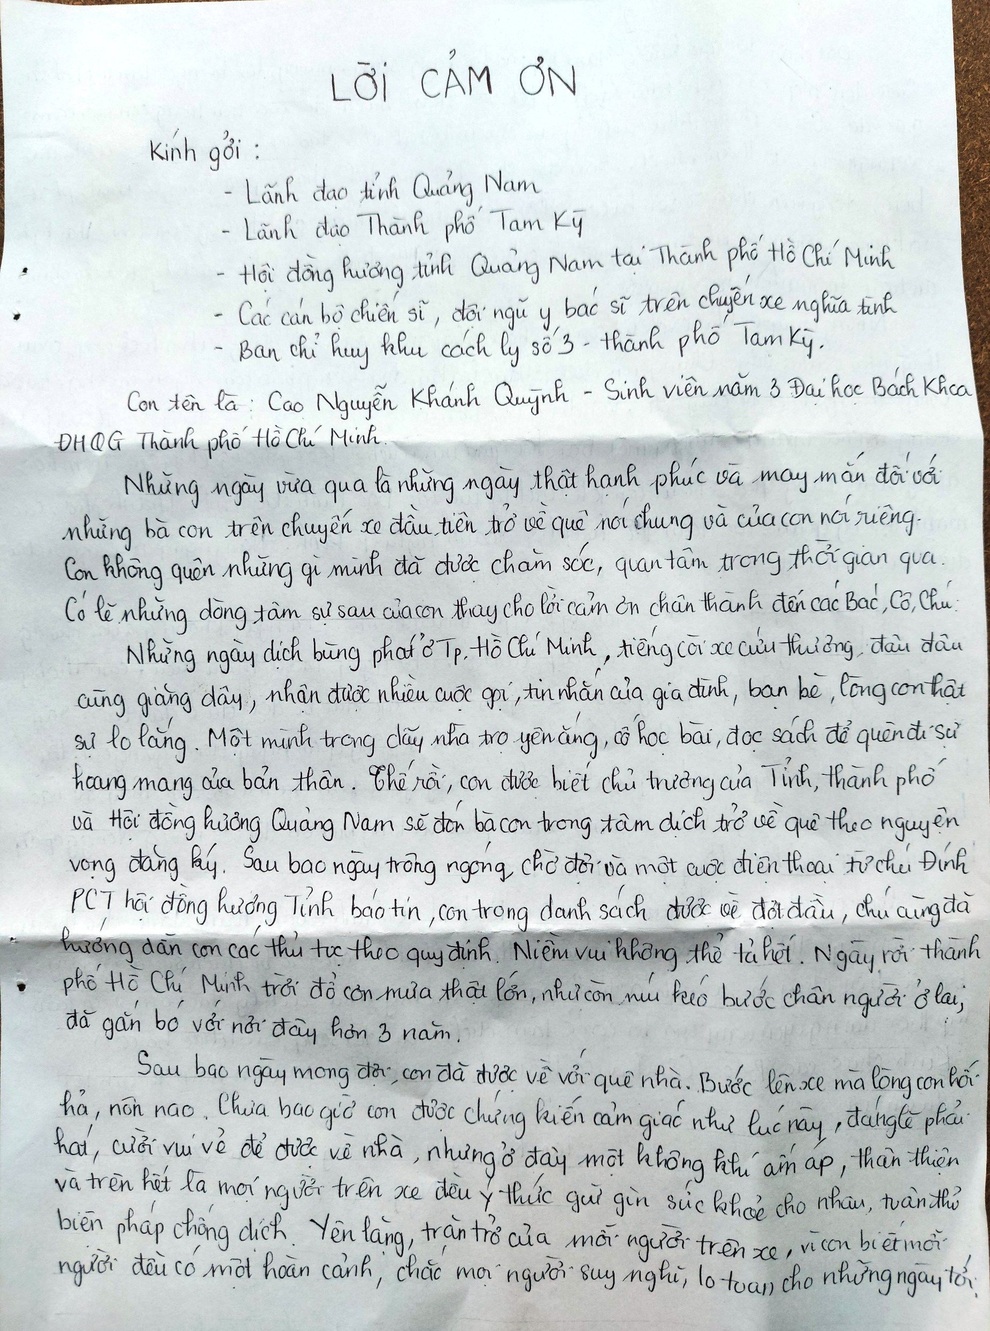 LỜI CẢM ƠN
Kính gởi :
- Lãnh đạo tỉnh Quảng Nam
- Lãnh đạo Thành phố Tam Kỳ
- Hội đồng hương tỉnh Quảng Nam tại Thành phố Hồ Chí Minh
- Các cán bộ chiến sĩ, đội ngũ y bác sĩ trên chuyến xe nghĩa tình
- Ban chỉ huy khu cách ly số 3 - thành phố Tam Kỳ.
Con tên là : Cao Nguyễn Khánh Quỳnh - Sinh viên năm 3 Đại học Bách Khoa
ĐHQG Thành phố Hồ Chí Minh.
Những ngày vừa qua là những ngày thật hạnh phúc và may mắn đối với
những bà con trên chuyến xe đầu tiên trở về quê nói chung và của con nói riêng.
Con không quên những gì mình đã được chăm sóc, quan tâm trong thời gian qua.
Có lẽ những dòng tâm sự sau của con thay cho lời cảm ơn chân thành đến các Bác, Cô, Chú.
Những ngày dịch bùng phát ở Tp. Hồ Chí Minh, tiếng còi xe cứu thương, đâu đâu
cũng giăng dây, nhận được nhiều cuộc gọi, tin nhắn của gia đình, bạn bè, lòng con thật
sự lo lắng. Một mình trong dãy nhà trọ yên ắng, cố học bài, đọc sách để quên đi sự
hoang mang của bản thân. Thế rồi, con được biết chủ trương của Tỉnh, thành phố
và Hội đồng hương Quảng Nam sẽ đón bà con trong tâm dịch trở về quê theo nguyện
vọng đăng ký. Sau bao ngày trông ngóng, chờ đợi và một cuộc điện thoại từ chú Đính
PCT hội đồng hương Tỉnh báo tin, con trong danh sách được về đợt đầu, chú cũng đã
hướng dẫn con các thủ tục theo quy định. Niềm vui không thể tả hết. Ngày rời thành
phố Hồ Chí Minh trời đổ cơn mưa thật lớn, như còn níu kéo bước chân người ở lại,
đã gắn bó với nơi đây hơn 3 năm.
Sau bao ngày mong đợi, con đã được về với quê nhà. Bước lên xe mà lòng con hối
hả, nôn nao. Chưa bao giờ con được chứng kiến cảm giác như lúc này, đáng lẽ phải
hát, cười vui vẻ để được về nhà, nhưng ở đây một không khí ấm áp, thân thiện
và trên hết là mọi người trên xe đều ý thức giữ gìn sức khoẻ cho nhau, tuân thủ
biện pháp chống dịch. Yên lặng, trăn trở của mỗi người trên xe, vì con biết mỗi
người đều có một hoàn cảnh, chắc mọi người suy nghĩ, lo toan cho những ngày tới.